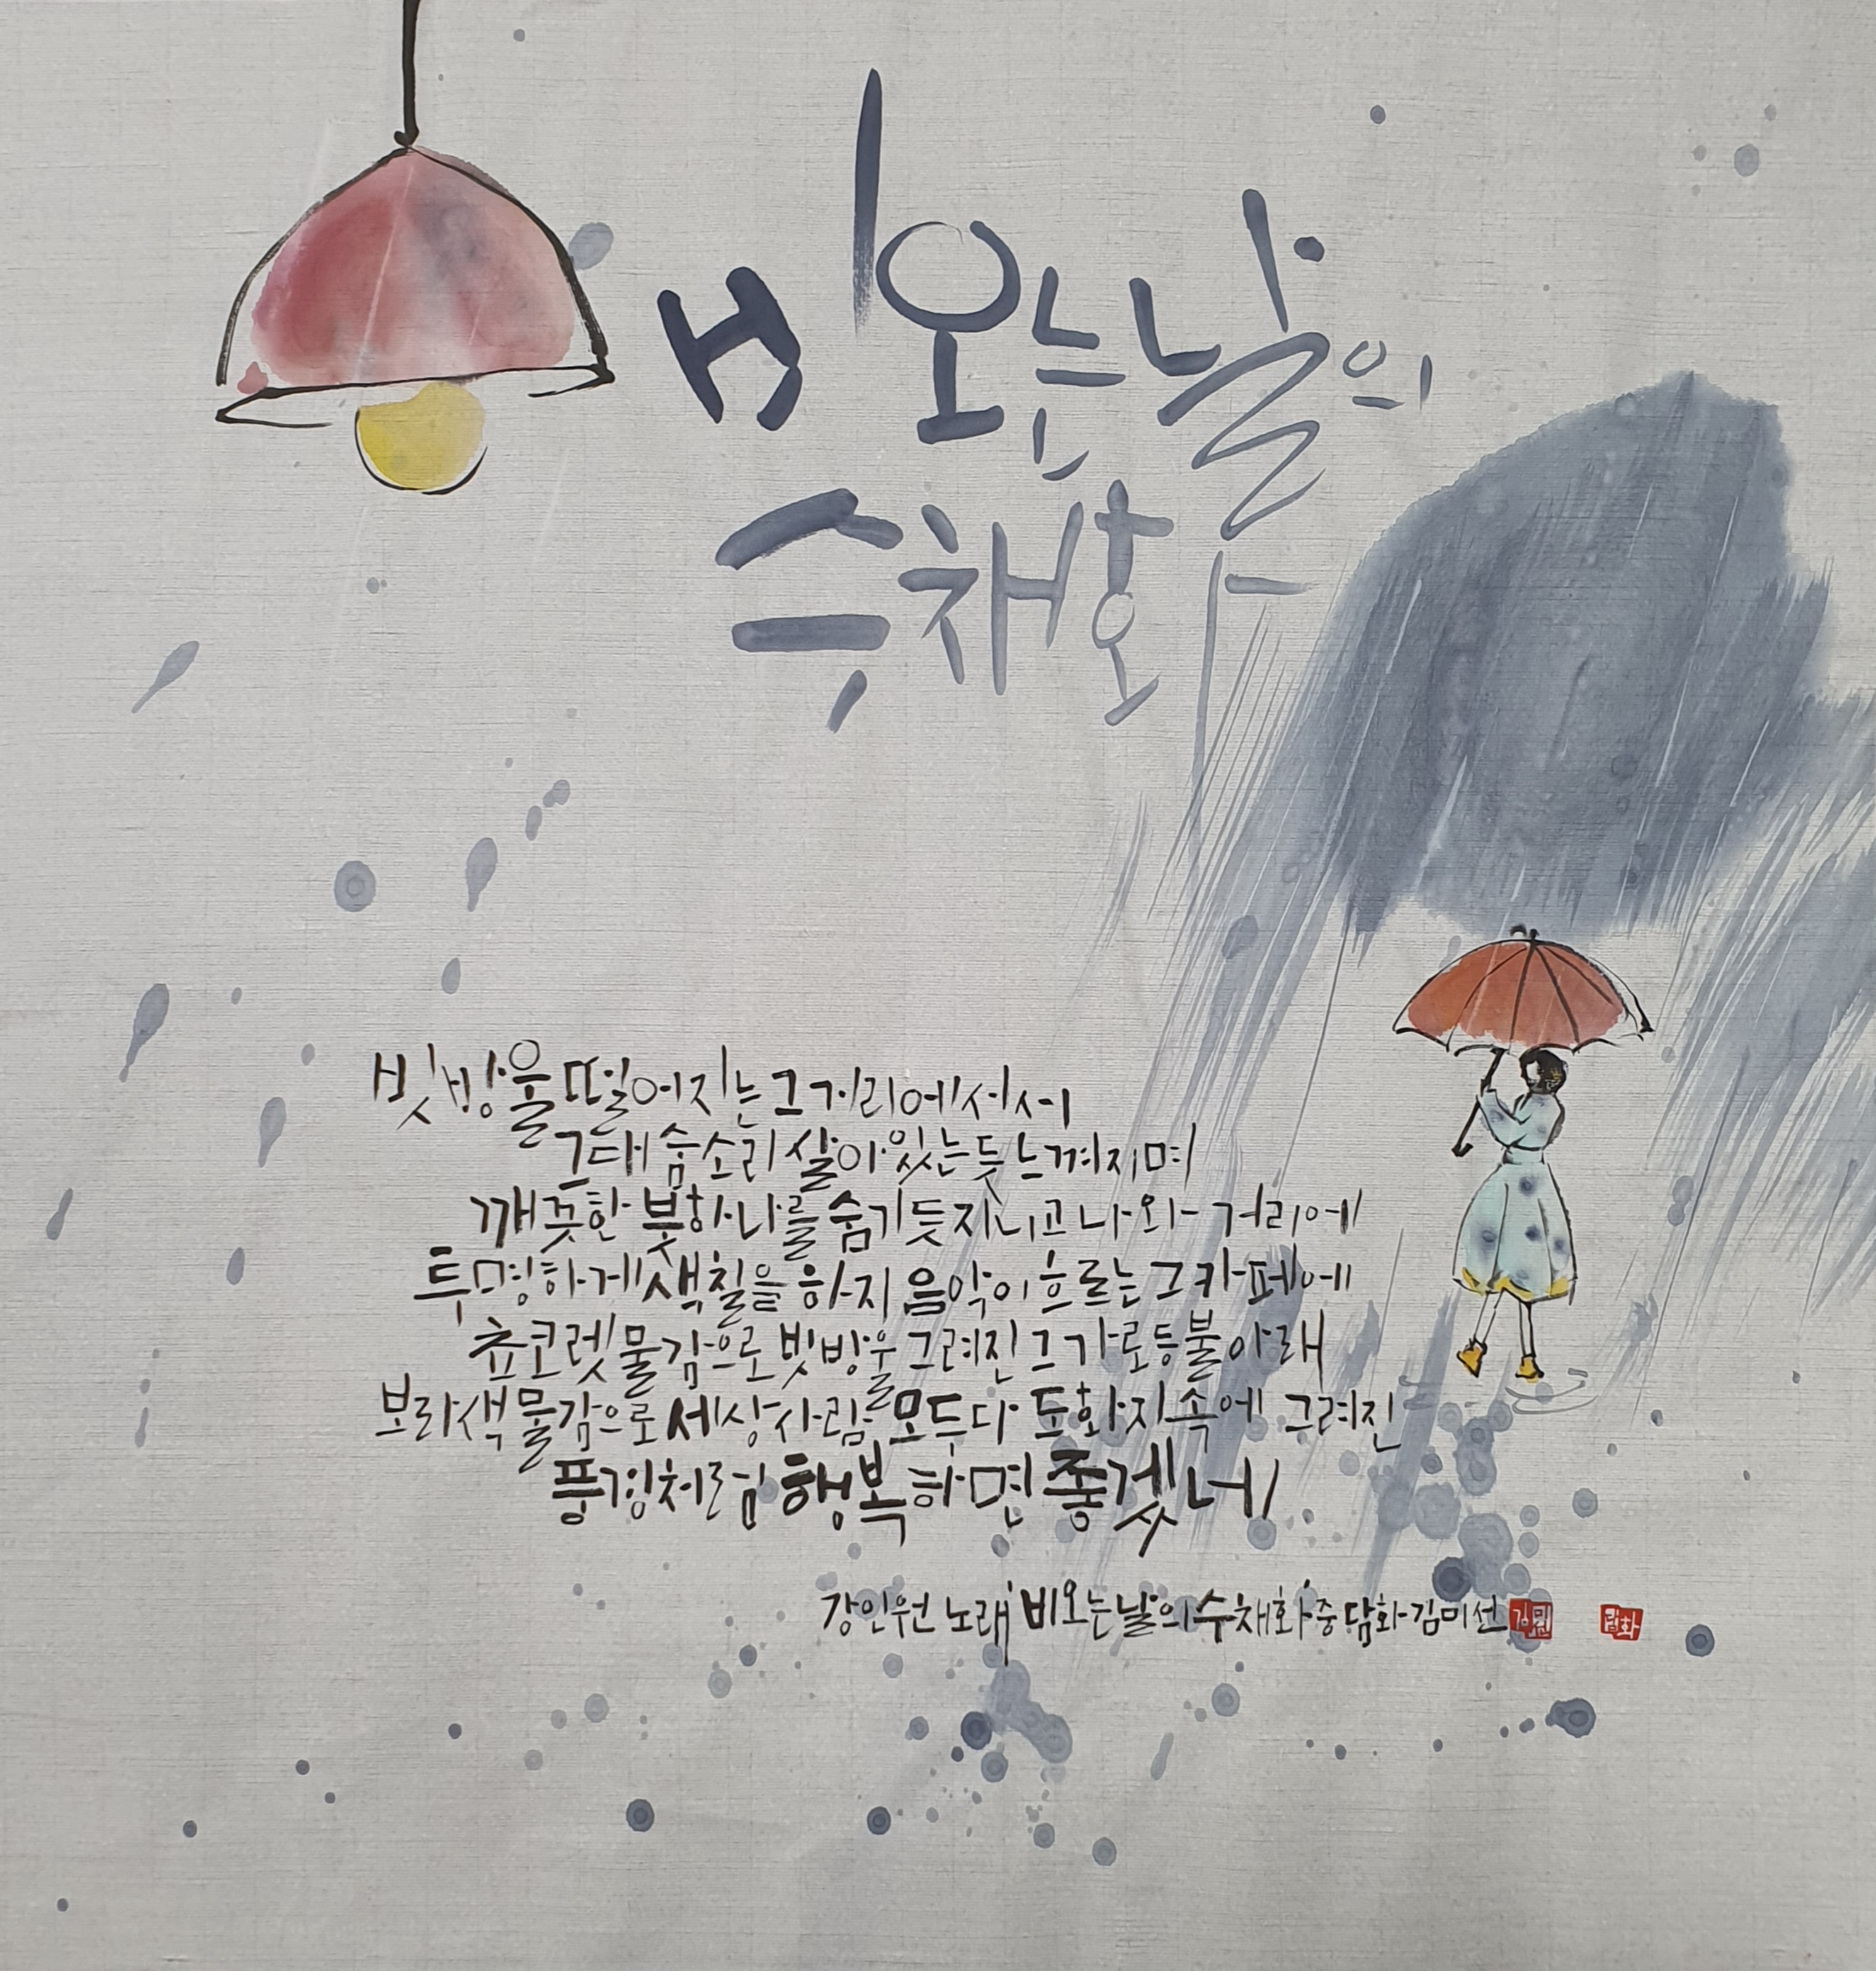 비오는날의
수채화
빗방울 떨어지는 그 거리에 서서
그대 숨소리 살아있는 듯 느껴지며
깨끗한 붓 하나를 숨기듯 지니고 나와 거리에
투명하게 색칠을 하지 음악이 흐르는 그 카페에
쵸코렛 물감으로 빗방울 그려진 그 가로등불 아래
보라색 물감으로 세상사람 모두다 도화지속에 그려진
풍경처럼 행복하면 좋겠네
강인원 노래 '비오는날의 수채화' 중 담화 김미선
담화